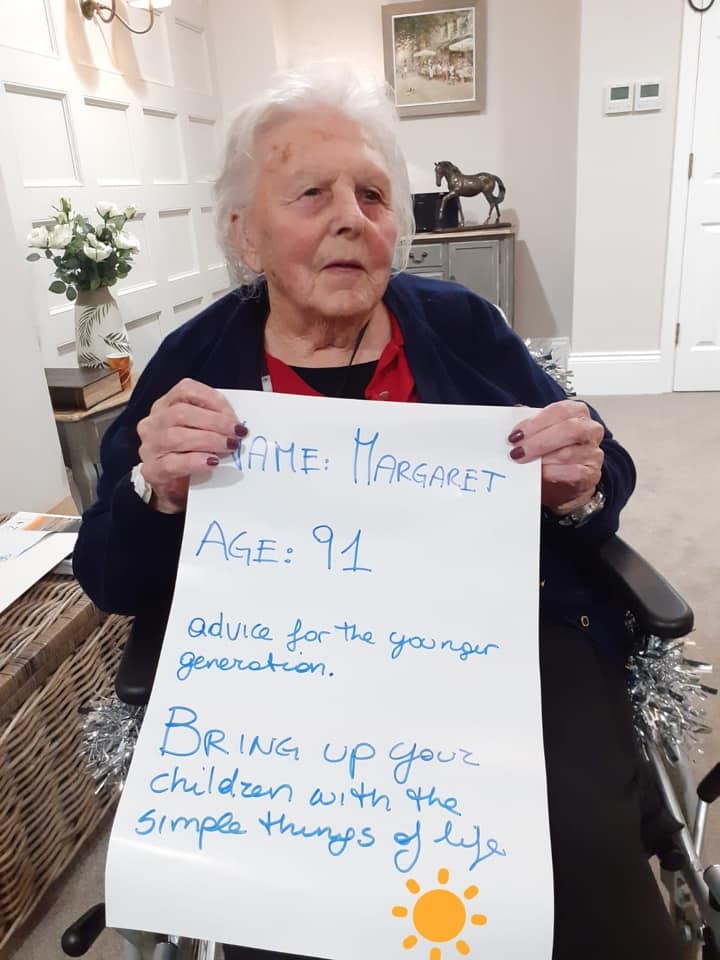 NAME: MARGARET
AGE: 91
advice for the younger
generation.
BRING up your
children with the
simple things of life